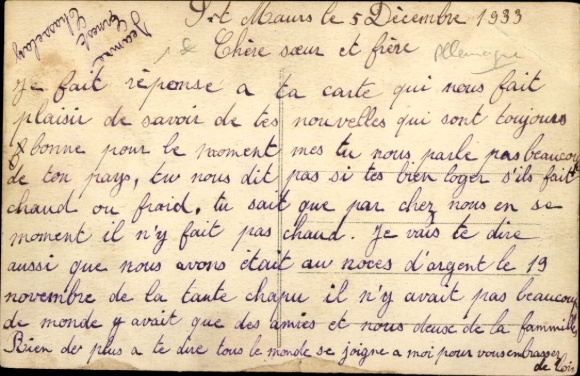 St Maurs le 5 Décembre 1933
Chère sœur et frère
Allemagne
Jeanne
Ernest
Chasselay
Je fait réponse a ta carte qui nous fait
plaisir de savoir de tes nouvelles qui sont toujours
bonne pour le moment mes tu nous parle pas beaucou
de ton pays, tu nous dit pas si tes bien loger s'ils fait
chaud ou fraid, tu sait que par chez nous en se
moment il n'y fait pas chaud. Je vais te dire
aussi que nous avons était au noces d'argent le 19
novembre de la tante chapu il n'y avait pas beaucou
de monde y avait que des amies et nous deuse de la fammille
Bien de plus a te dire tous le monde se joigne a moi pour vous embrasser
de loin